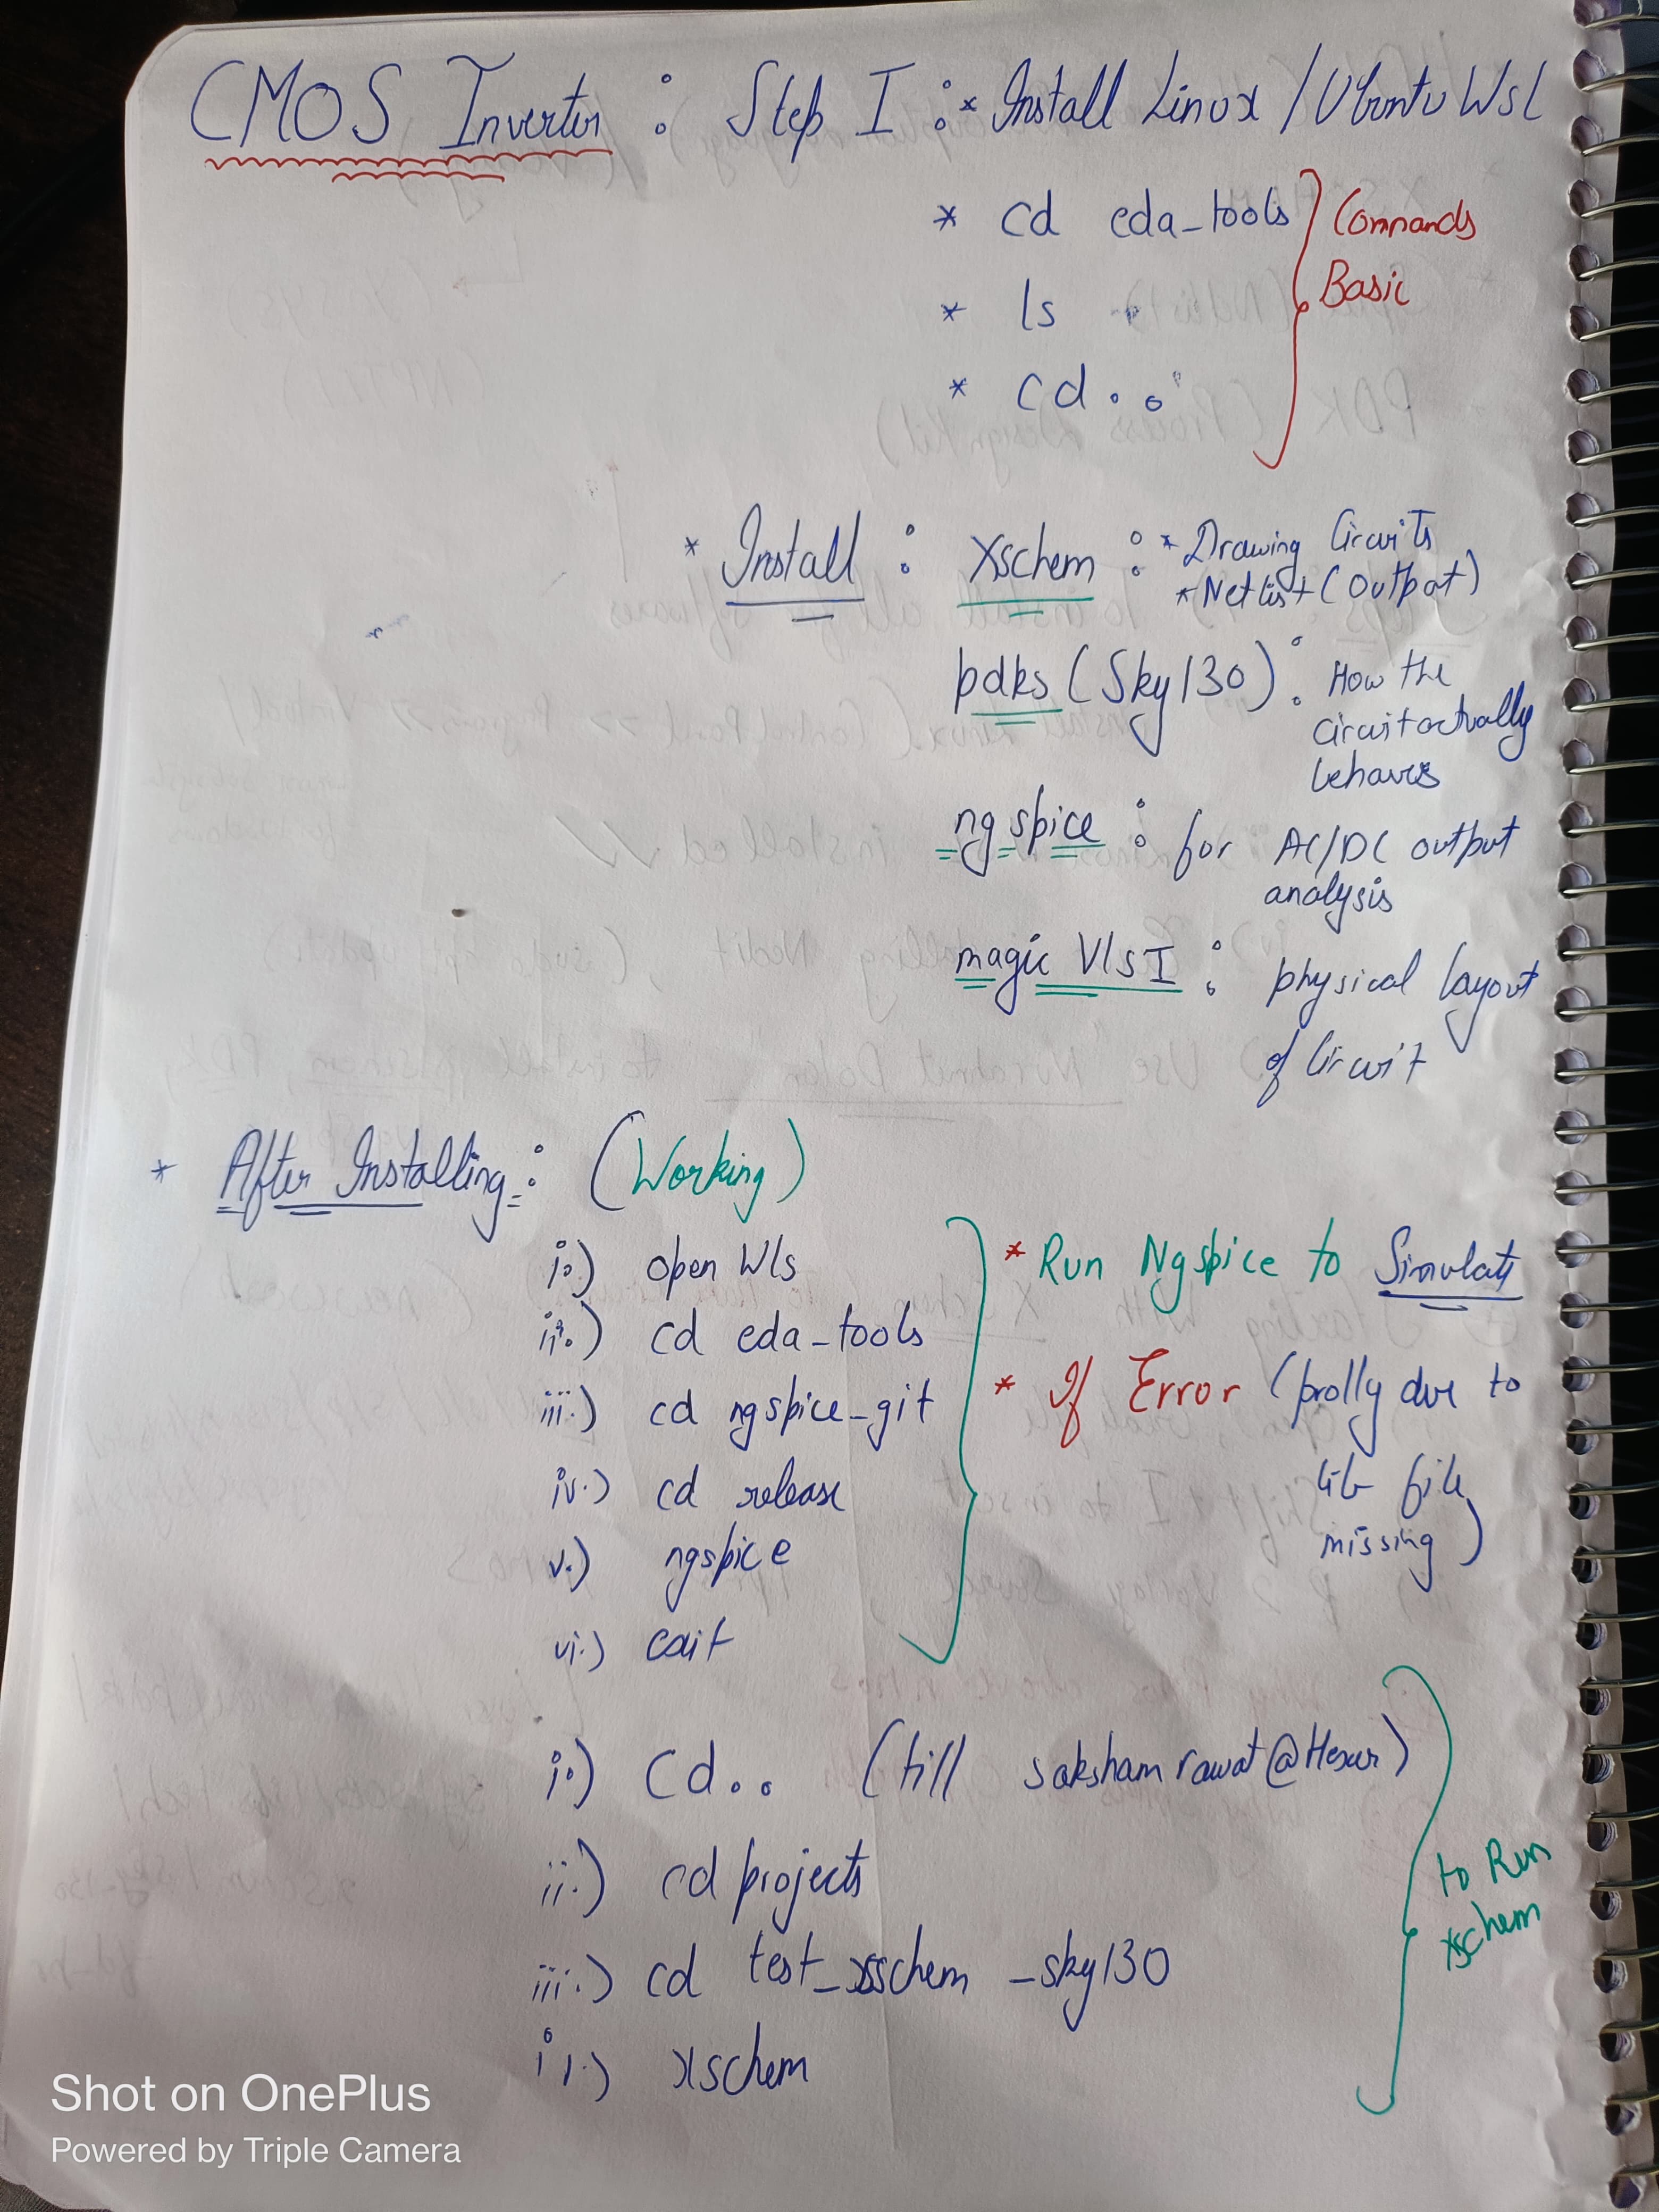 CMOS Inverter : Step I : * Install Linux / Ubuntu WSL
* cd eda_tools
* ls
* cd ..
Commands
Basic
* Install : Xschem : * Drawing Circuits
* Netlist (Output)
pdks (Sky130) : How the
circuit actually
behaves
ngspice : for AC/DC output
analysis
magic VlsI : physical layout
of Circuit
* After Installing : (Working)
i.) open Wls
ii.) cd eda_tools
iii.) cd ngspice_git
iv.) cd release
v.) ngspice
vi.)
* Run Ngspice to Simulate
* If Error (prolly due to
lib file
missing)
i.) Cd.. (till sakshamrawat@)
ii.) cd projects
iii.) cd test_xschem_sky130
iv.) xschem
to Run
xschem
Shot on OnePlus
Powered by Triple Camera